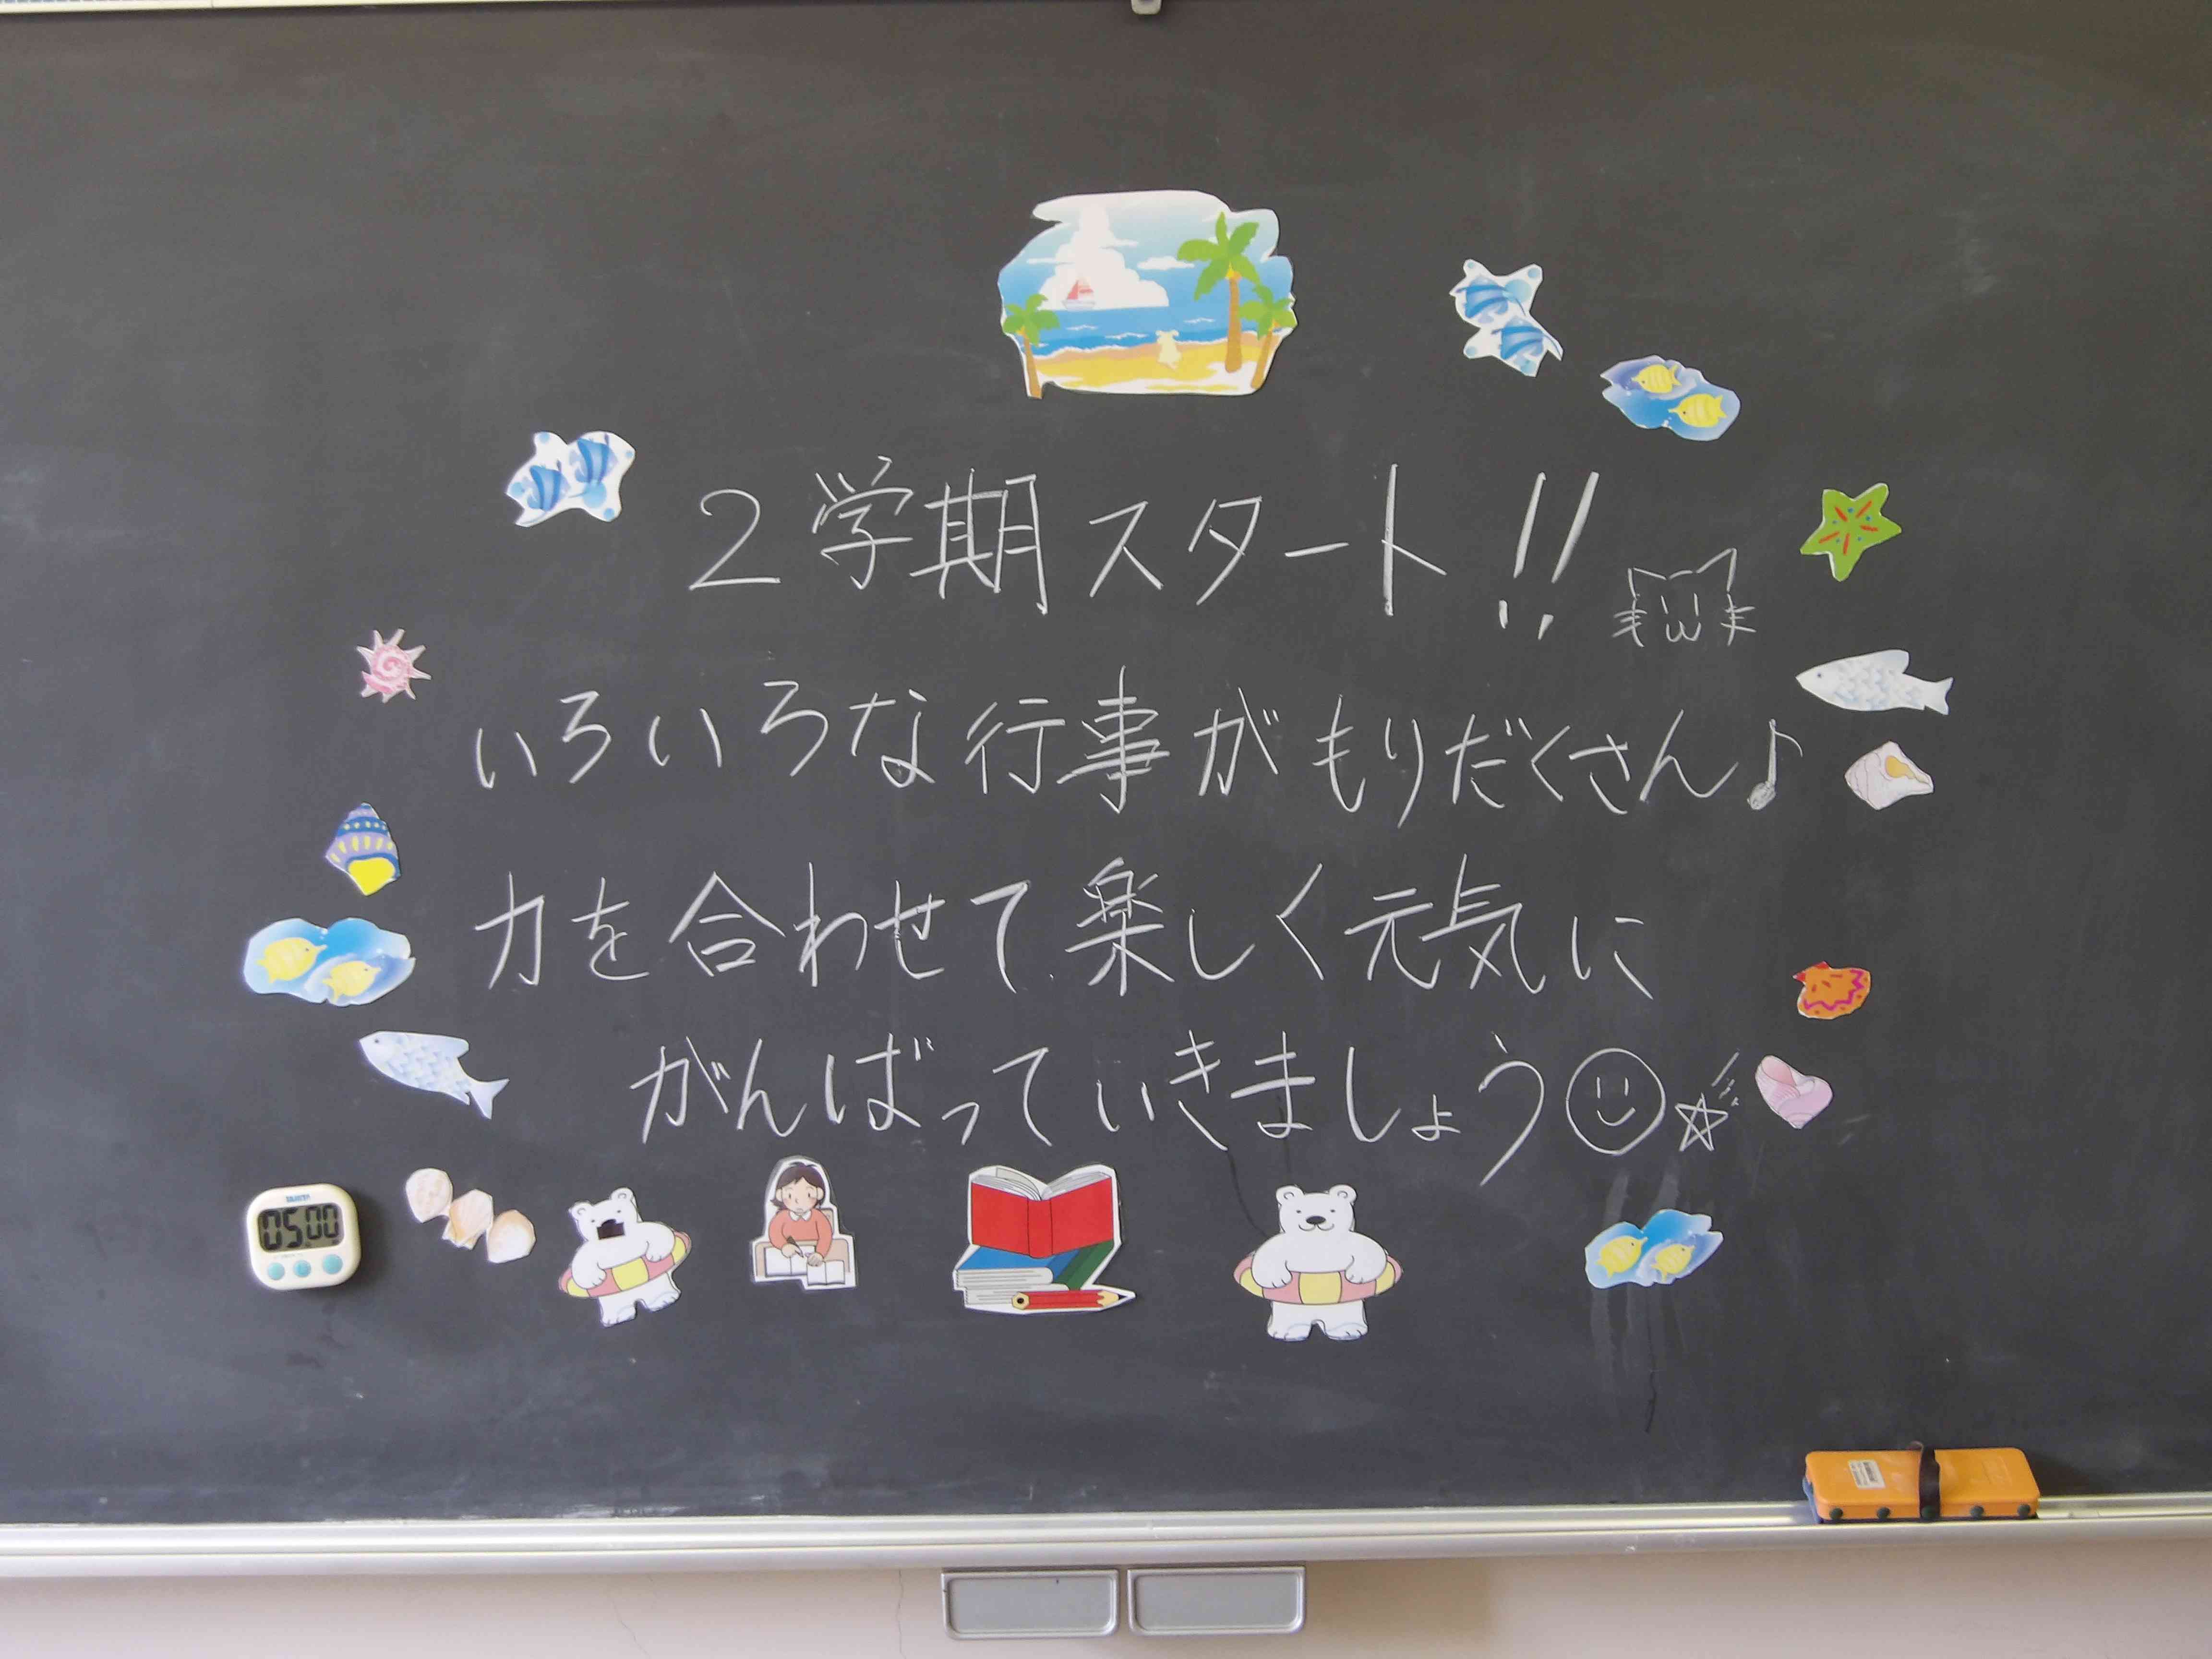 2学期スタート!!
いろいろな行事がもりだくさん♪
力を合わせて楽しく元気に
がんばっていきましょう
05:00